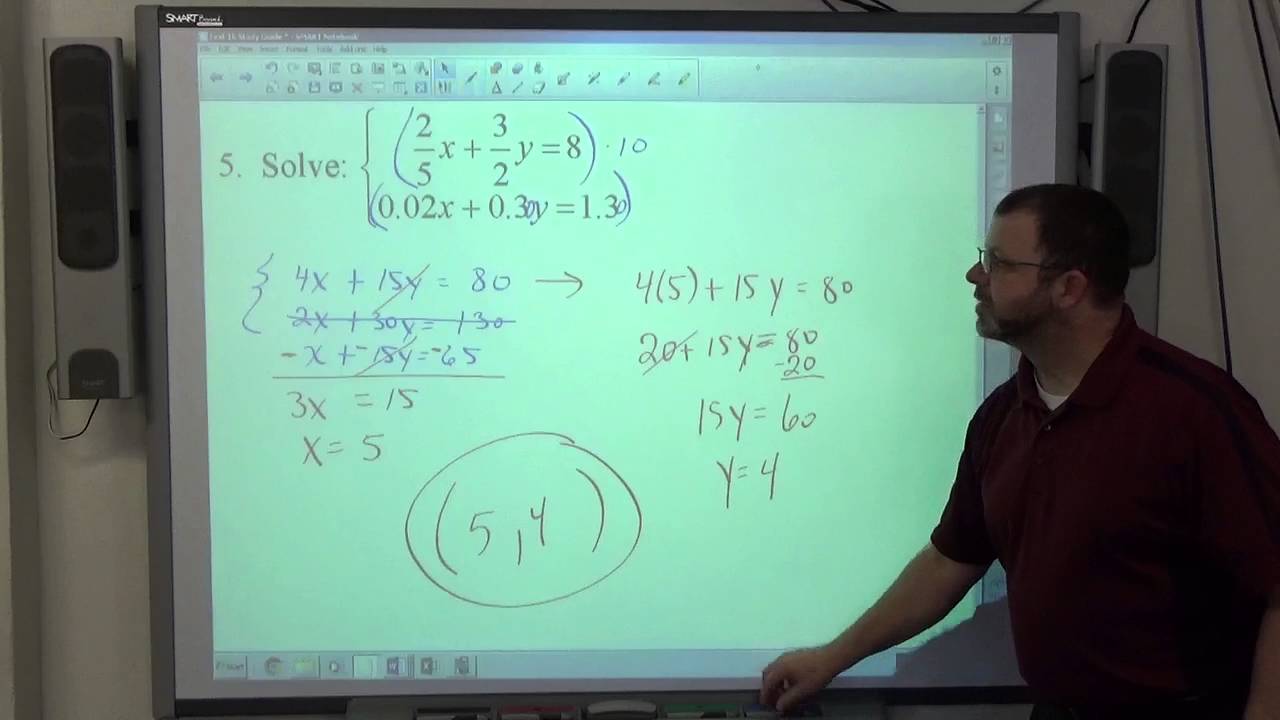 SMART Board
Unit 1b Study Guide * - SMART Notebook
File Edit View Insert Format Tools Add-ons Help
5. Solve: { (2/5x + 3/2y = 8) · 10
(0.02x + 0.30y = 1.30)
4x + 15y = 80 → 4(5) + 15y = 80
2x + 30y = 130
20 + 15y = 80
-20
-x + -15y = -65
3x = 15
15y = 60
x = 5
y = 4
(5, 4)
SMART